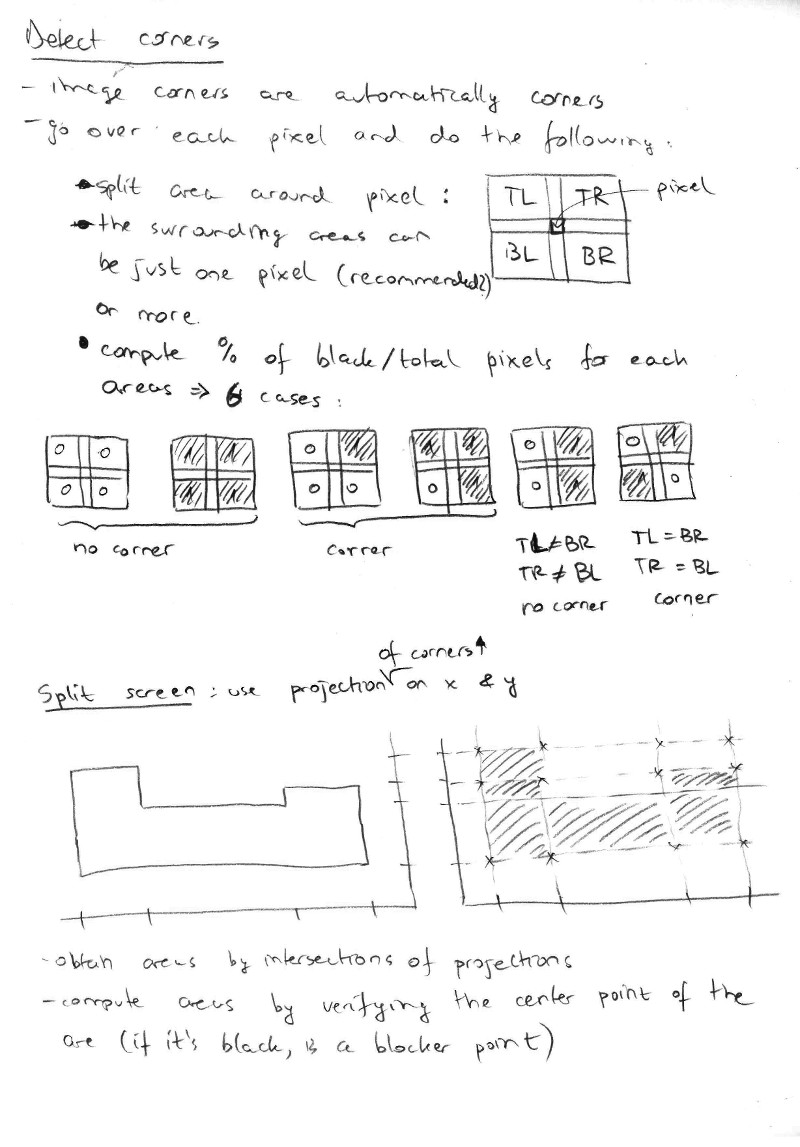 Detect corners
- image corners are automatically corners
- go over each pixel and do the following:
• split area around pixel :
TL TR pixel
BL BR
• the surrounding areas can
be just one pixel (recommended?)
or more.
• compute % of black/total pixels for each
areas ⇒ 6 cases :
0 0 1 1 0 1 1 1 0 1 0 1
0 0 1 1 0 0 0 1 0 1 1 0
no corner
correr
TL≠BR
TR ≠ BL
no corner
TL = BR
TR = BL
corner
of corners
Split screen : use projection √ on x & y
- obtain areas by intersections of projections
- compute areas by verifying the center point of the
are (if it's black, is a blocker point)